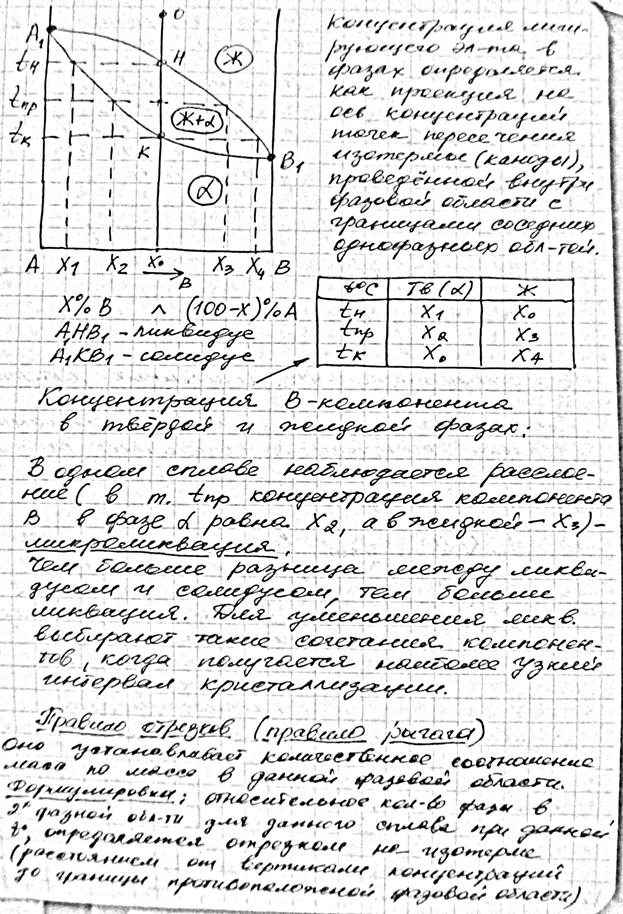 O
A1
tн
H
Ж
tпр
Ж+α
tк
K
B1
α
A X1 X2 X0 X3 X4 B
B
Концентрация леги-
рующего эл-та в
фазах определяется
как проекция на
ось концентраций
точек пересечения
изотермы (каноды),
проведённой внутри
фазовой области с
границами соседних
однофазных обл-тей.
X% B ∧ (100-x)% A
A1HB1 - ликвидус
A1KB1 - солидус
t°C Тв (α) Ж
tн X1 X0
tпр X2 X3
tк X0 X4
Концентрация B-компонента
в твёрдой и жидкой фазах:
В одном сплаве наблюдается рассло-
ние (в т. tпр концентрация компонента
B в фазе α равна X2, а в жидкой - X3) -
микроликвация.
Чем больше разница между ликви-
дусом и солидусом, тем больше
ликвация. Для уменьшения ликв.
выбирают такие сочетания компонен-
тов, когда получается наиболее узкий
интервал кристаллизации.
Правило отрезков (правило рычага)
Оно устанавливает количественное соотношение
масс по массе в данной фазовой области.
Формулировки: относительное кол-во фазы в
2х фазной обл-ти для данного сплава при данной
t°, определяется отрезком на изотерме
(расстоянием от вертикали концентраций
до границы противоположной фазовой области)